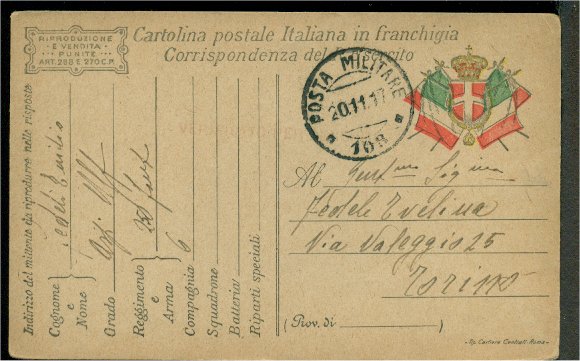 RIPRODUZIONE
E VENDITA
PUNITE
ART. 288 E 270 C.P.
Cartolina postale Italiana in franchigia
Corrispondenza del R. Esercito
POSTA MILITARE
20.11.17
108
Indirizzo del mittente da riprodurre nelle risposte
Cognome e Nome
Fedele Emilio
Grado
Reggimento e Arma
Compagnia 6
Squadrone
Batteria
Riparti speciali
Al
Fedele Evelina
Via Valeggio 25
Torino
(Prov. di )